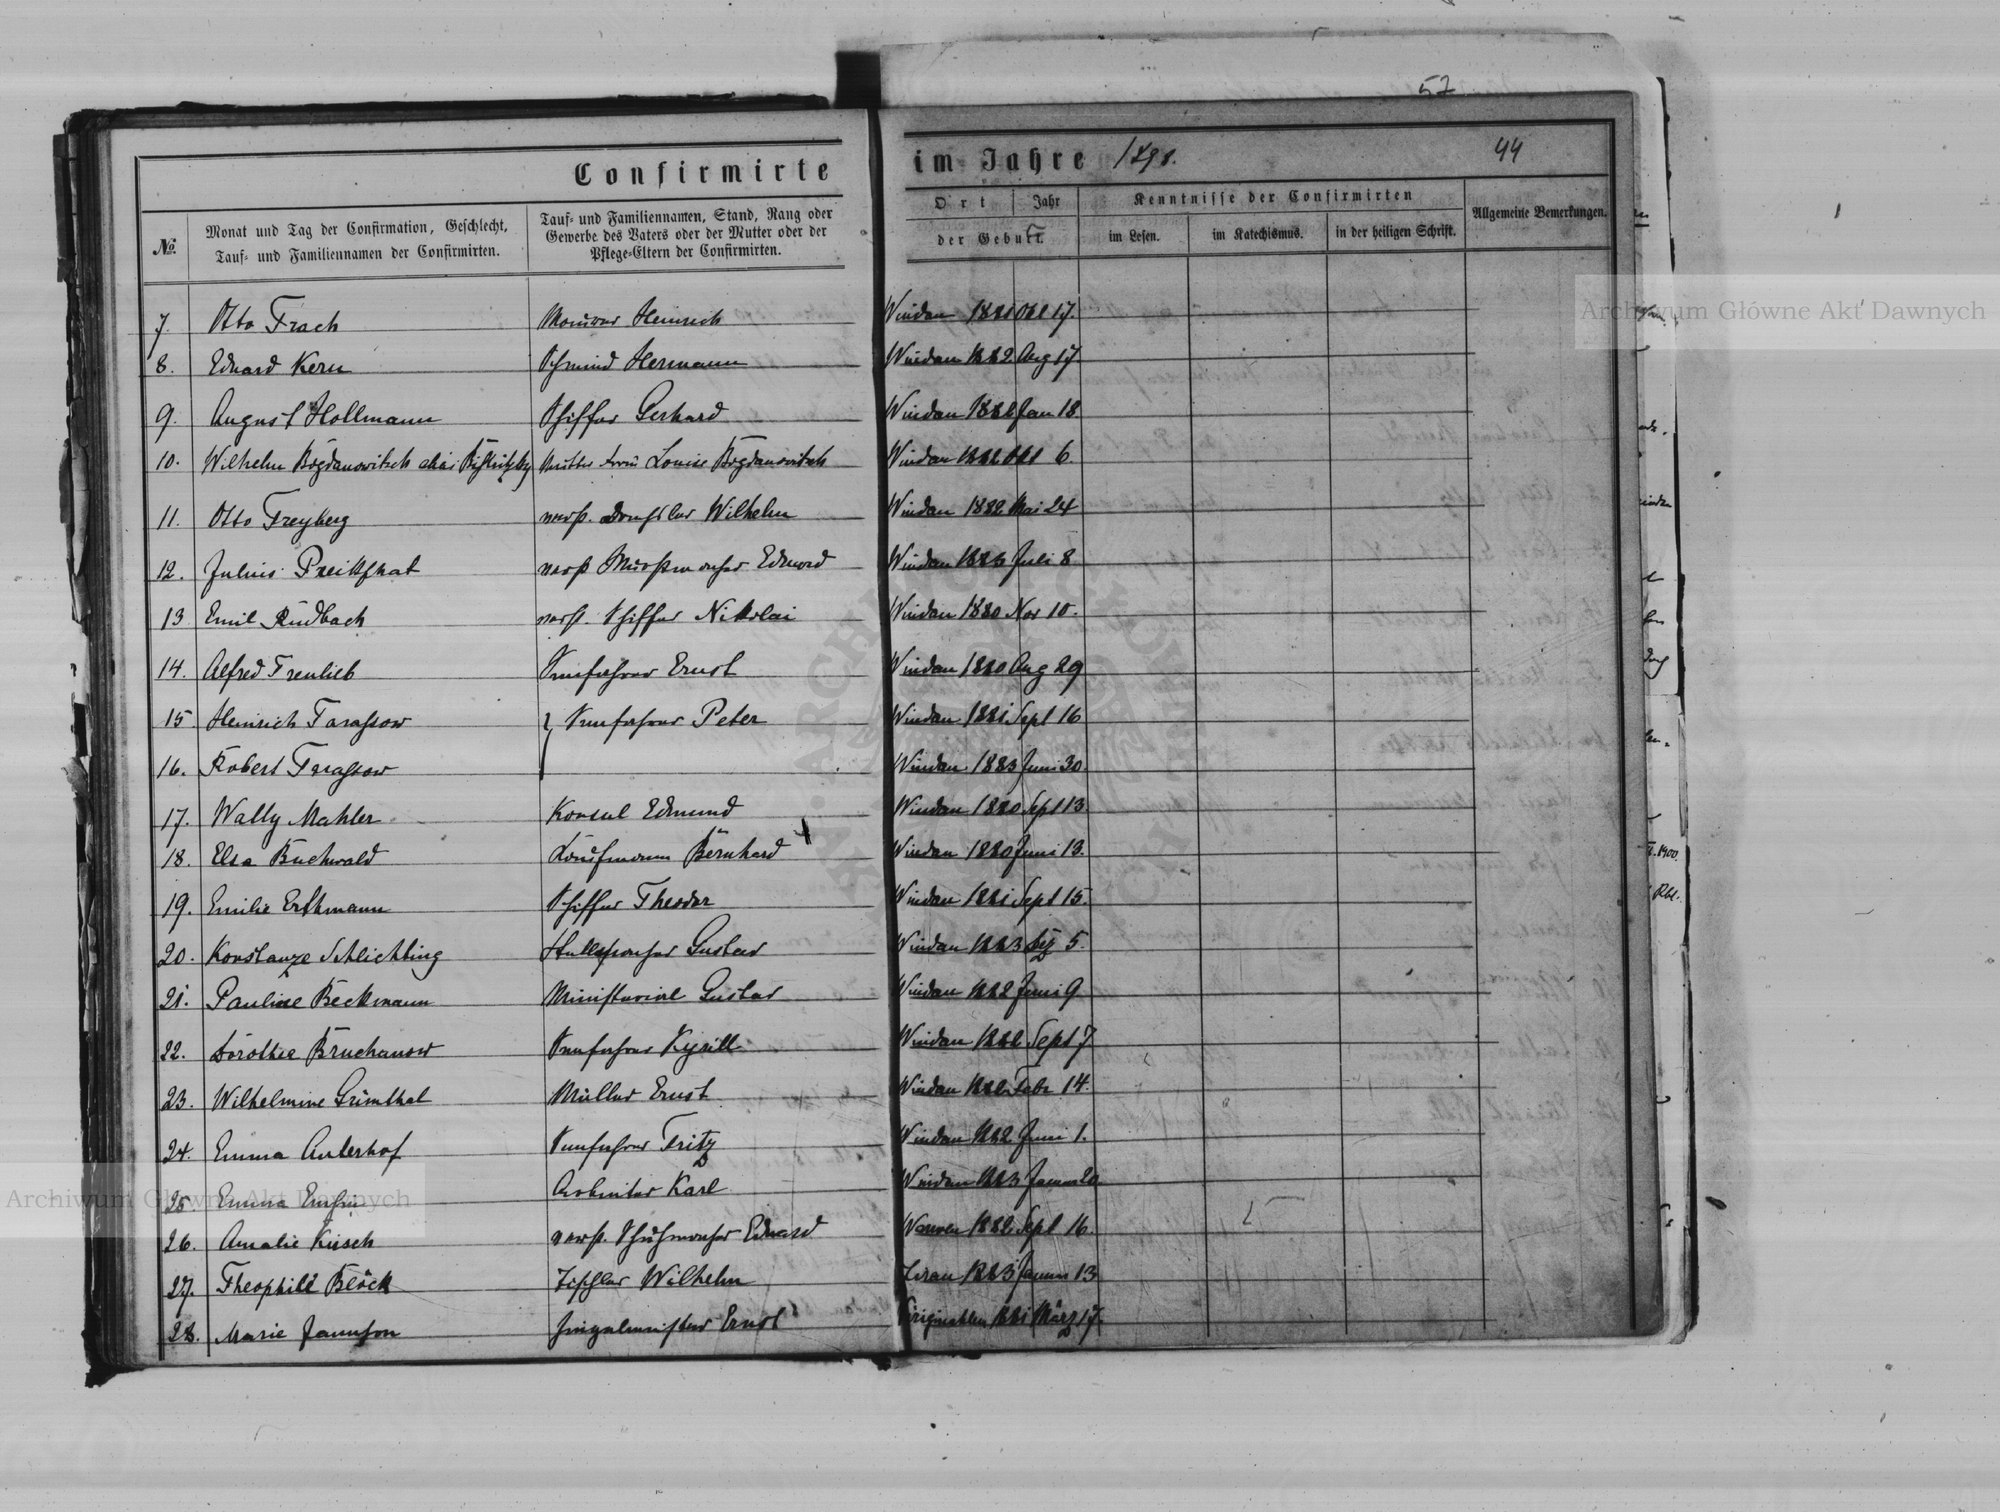 57
Confirmirte im Jahre 1898.
44
№.
Monat und Tag der Confirmation, Geschlecht,
Tauf- und Familiennamen der Confirmirten.
Tauf- und Familiennamen, Stand, Rang oder
Gewerbe des Vaters oder der Mutter oder der
Pflege-Eltern der Confirmirten.
Ort Jahr
der Geburt.
Kenntnisse der Confirmirten
im Lesen.
im Katechismus.
in der heiligen Schrift.
Allgemeine Bemerkungen.
7. Otto Frach Maurer Heinrich Windau 1881 Okt 17.
8. Eduard Kern Schmied Hermann Windau 1882 Aug 17
9. August Hollmann Schiffer Gerhard Windau 1882 Jan 18
10. Wilhelm Bogdanowitsch alias Mutter Louise Bogdanowitsch Windau 1882 Okt 6.
11. Otto Freyberg verst. Wilhelm Windau 1882 Mai 24
12. Julius Preikschat verst. Eduard Windau Juli 8
13 Emil Rudbach verst. Schiffer Nikolai Windau 1880 Nov 10.
14. Alfred Freulieb Ernst Windau 1880 Aug 29
15 Heinrich Tarassow Peter Windau 1881 Sept 16
16. Robert Tarassow Windau 1883 Juni 30.
17. Wally Mahler Konsul Edmund Windau 1880 Sept 13.
18. Elsa Buchwald Kaufmann Bernhard Windau 1880 Juni 13.
19. Emilie Erkmann Schiffer Theodor Windau 1881 Sept 15.
20. Konstanze Schlichting Stellmacher Gustav Windau 1883 5.
21. Pauline Beckmann Ministerial Gustav Windau 1882 Juni 9
22. Dorothea Bruchanow Kyrill Windau 1882 Sept 7
23. Wilhelmine Grünthal Müller Ernst Windau 1882 Febr 14.
24. Emma Anderhof Fritz Windau 1882 Juni 1.
25 Emma Arbeiter Karl Windau 1883 Januar 20
26. Amalie Kirsch verst. Schuhmacher Eduard 1882 Sept 16.
27. Theophile Block Tischler Wilhelm 1883 Januar 13
28. Marie Jannson Ernst 1881 März 17.
Archiwum Główne Akt Dawnych
Archiwum Główne Akt Dawnych